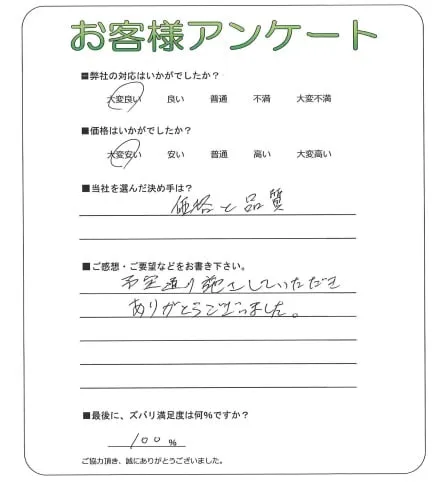 お客様アンケート
■弊社の対応はいかがでしたか？
大変良い 良い 普通 不満 大変不満
■価格はいかがでしたか？
大変安い 安い 普通 高い 大変高い
■当社を選んだ決め手は？
価格と品質
■ご感想・ご要望などをお書き下さい。
予定通り施工していただき
ありがとうございました。
■最後に、ズバリ満足度は何％ですか？
100％
ご協力頂き、誠にありがとうございました。